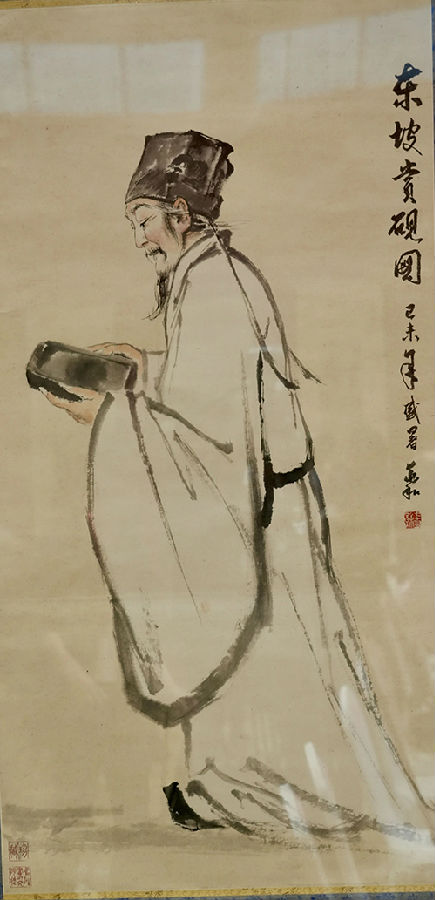 东坡赏砚图
己未年盛暑